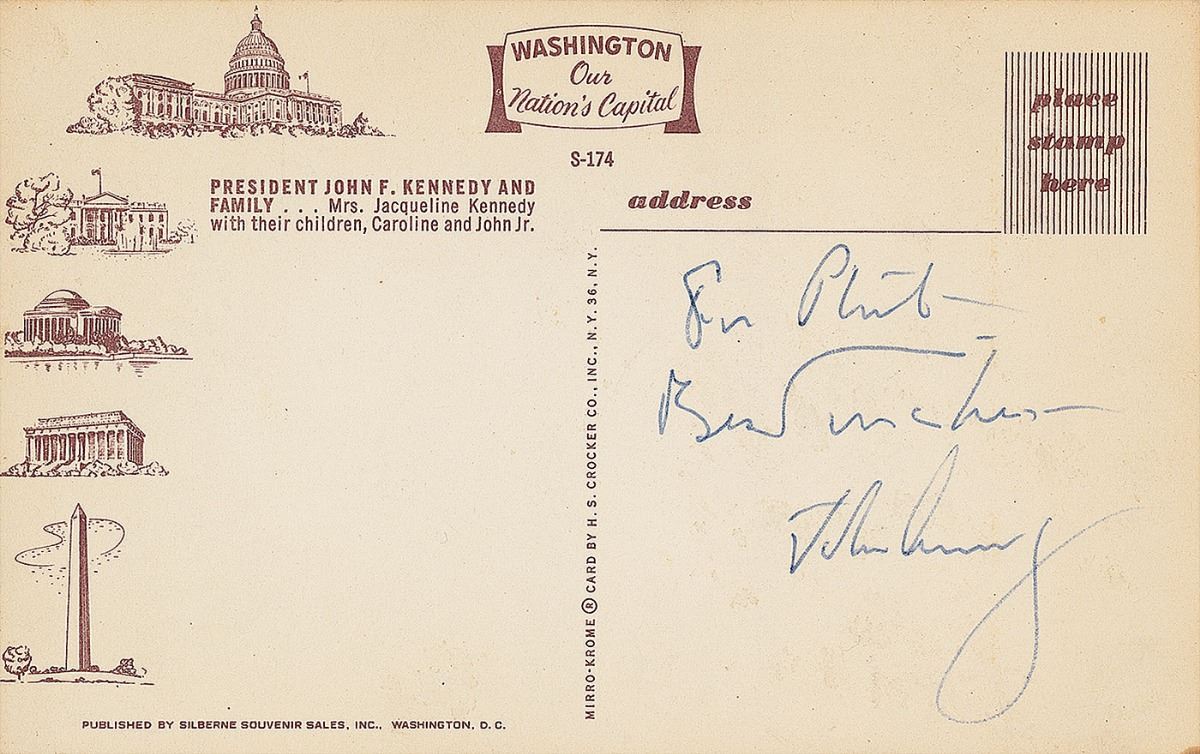 WASHINGTON
Our
Nation's Capital
S-174
PRESIDENT JOHN F. KENNEDY AND
FAMILY . . . Mrs. Jacqueline Kennedy
with their children, Caroline and John Jr.
address
place
stamp
here
For
Best wishes
John Kennedy
MIRRO-KROME ® CARD BY H. S. CROCKER CO., INC., N. Y. 36, N. Y.
PUBLISHED BY SILBERNE SOUVENIR SALES, INC., WASHINGTON, D. C.